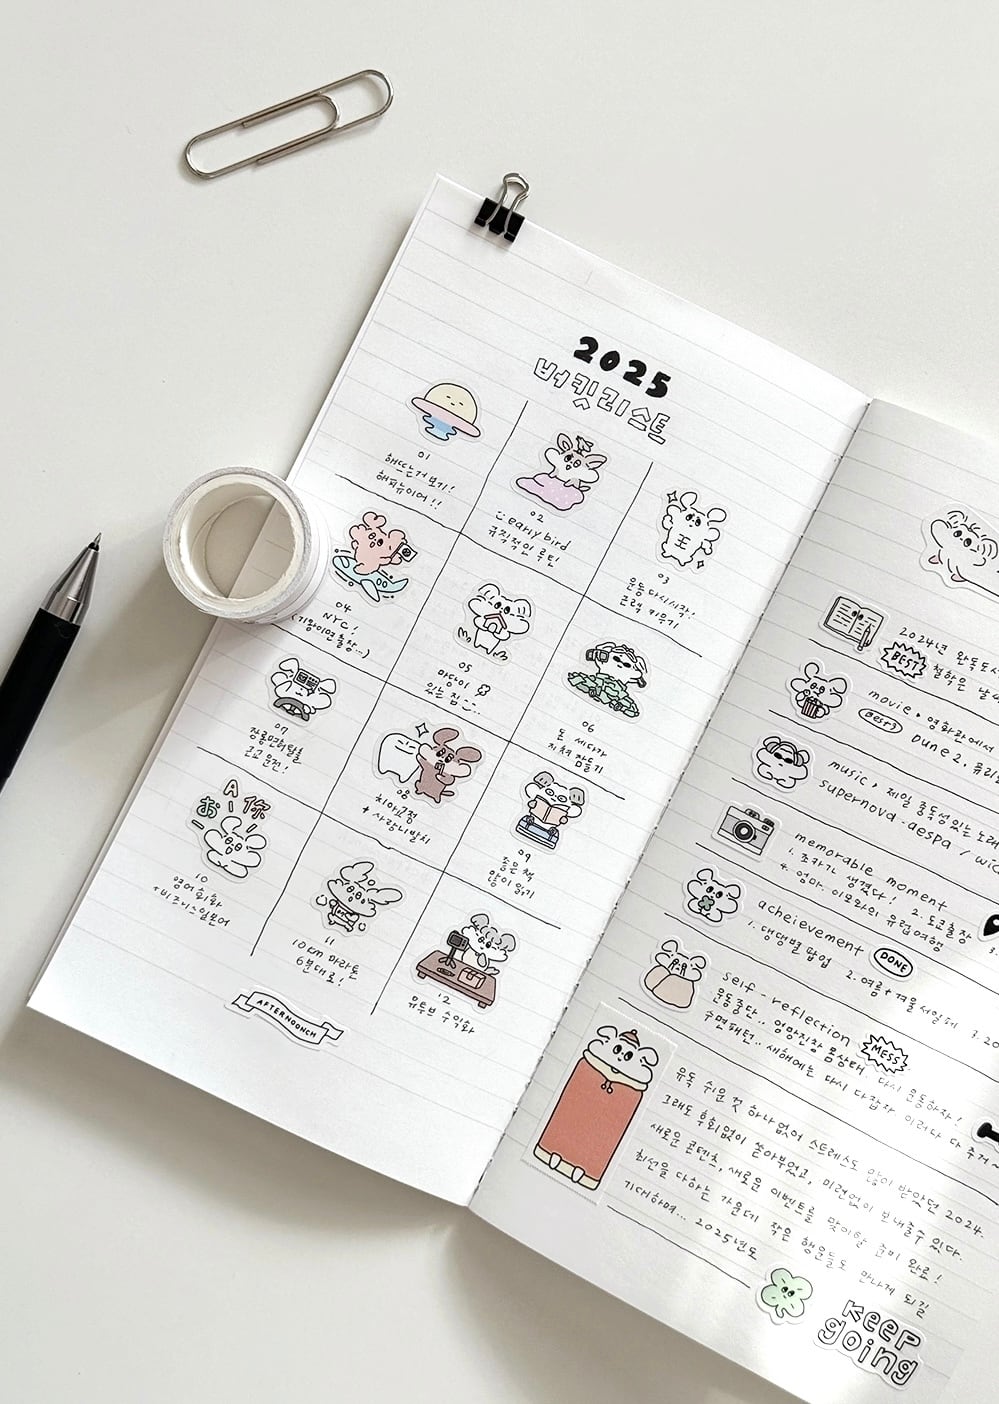 2025
버킷리스트
01
해뜨는거 보기!
해피뉴이어!!
02
early bird
규칙적인 루틴
03
운동 다시시작!
근력 키우기
04
NYC!
05
마당이
있는 집
06
돈 세다가
지쳐 잠들기
07
장롱면허탈출
운전!
08
치아교정
+ 사랑니발치
09
좋은 책
많이 읽기
A
あ
你
10
영어회화
+비즈니스일본어
11
10km 마라톤
6분대로!
12
유튜브 수익화
AFTERNOONCH
2024년 완독도서
BEST 철학은 날
movie, 영화관에서
BEST Dune 2, 퓨리
music, 제일 중독성있는 노래
supernova - aespa / wic
memorable moment
1. 조카가 생겼다! 2. 도쿄출장
4. 엄마, 이모와의 유럽여행
acheievement DONE
1. 생명별 팝업 2. 여름+겨울서일페
self-reflection MESS
운동중단.. 엉망진창 몸상태.. 다시 운동하자!
수면패턴.. 새해에는 다시 다잡자
유독 쉬운 것 하나없어 스트레스도 많이 받았던 2024.
그래도 후회없이 쏟아부었고, 미련없이 보내줄수 있다.
새로운 콘텐츠, 새로운 이벤트를 맞이할 준비 완료!
최선을 다하는 가운데 작은 행운들도 만나게 되길
기대하며... 2025년도
keep
going